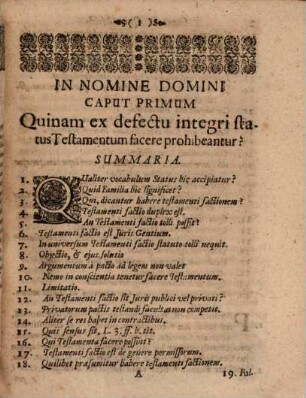 ( 1 )
IN NOMINE DOMINI
CAPUT PRIMUM
Quinam ex defectu integri sta-
tus Testamentum facere prohibeantur?
SUMMARIA.
1. QUaliter vocabulum Status hic accipiatur?
2. Quid Familia hic significet?
3. Qui, dicantur habere testamenti factionem?
4. Testamenti factio duplex est.
5. An Testamenti factio tolli possit?
6. Testamenti factio est Juris Gentium.
7. In universum Testamenti factio statuto tolli nequit.
8. Objectio, & ejus solutio
9. Argumentum à pacto ad legem non valet
10. Nemo in conscientia tenetur facere Testamentum.
11. Limitatio.
12. An Testamenti factio sit Juris publici vel privati?
13. Privatorum pactis testandi facultas non competit.
14. Aliter se res habet in contractibus.
15. Quis sensus sit, L. 3. ff. h. tit.
16. Qui Testamenta facere possint?
17. Testamenti factio est de genere permissorum.
18. Quilibet præsumitur habere testamenti factionem.
A 19. Fal.